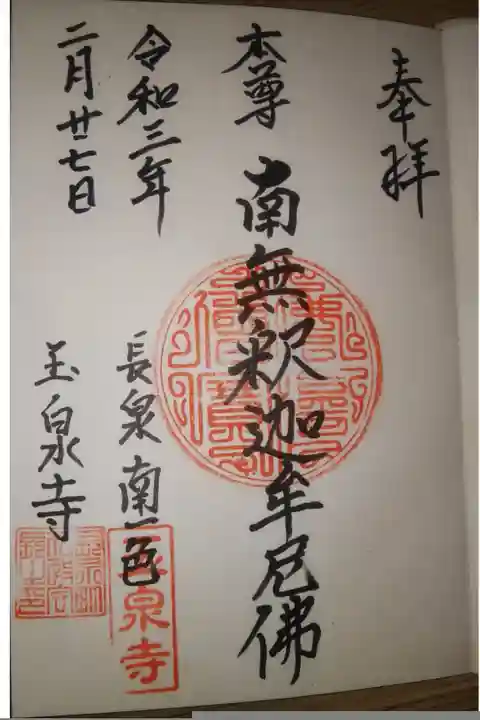 奉拝
本尊 南無釈迦牟尼佛
令和三年
二月廿七日
長泉 南一色
玉泉寺
泉寺